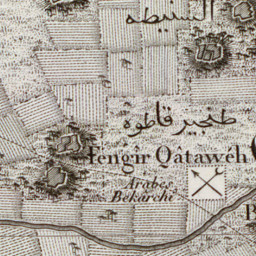 السنيطه
طنجير قاطوه
Tengîr Qâtaweh
Arabes
Bekârchi
B